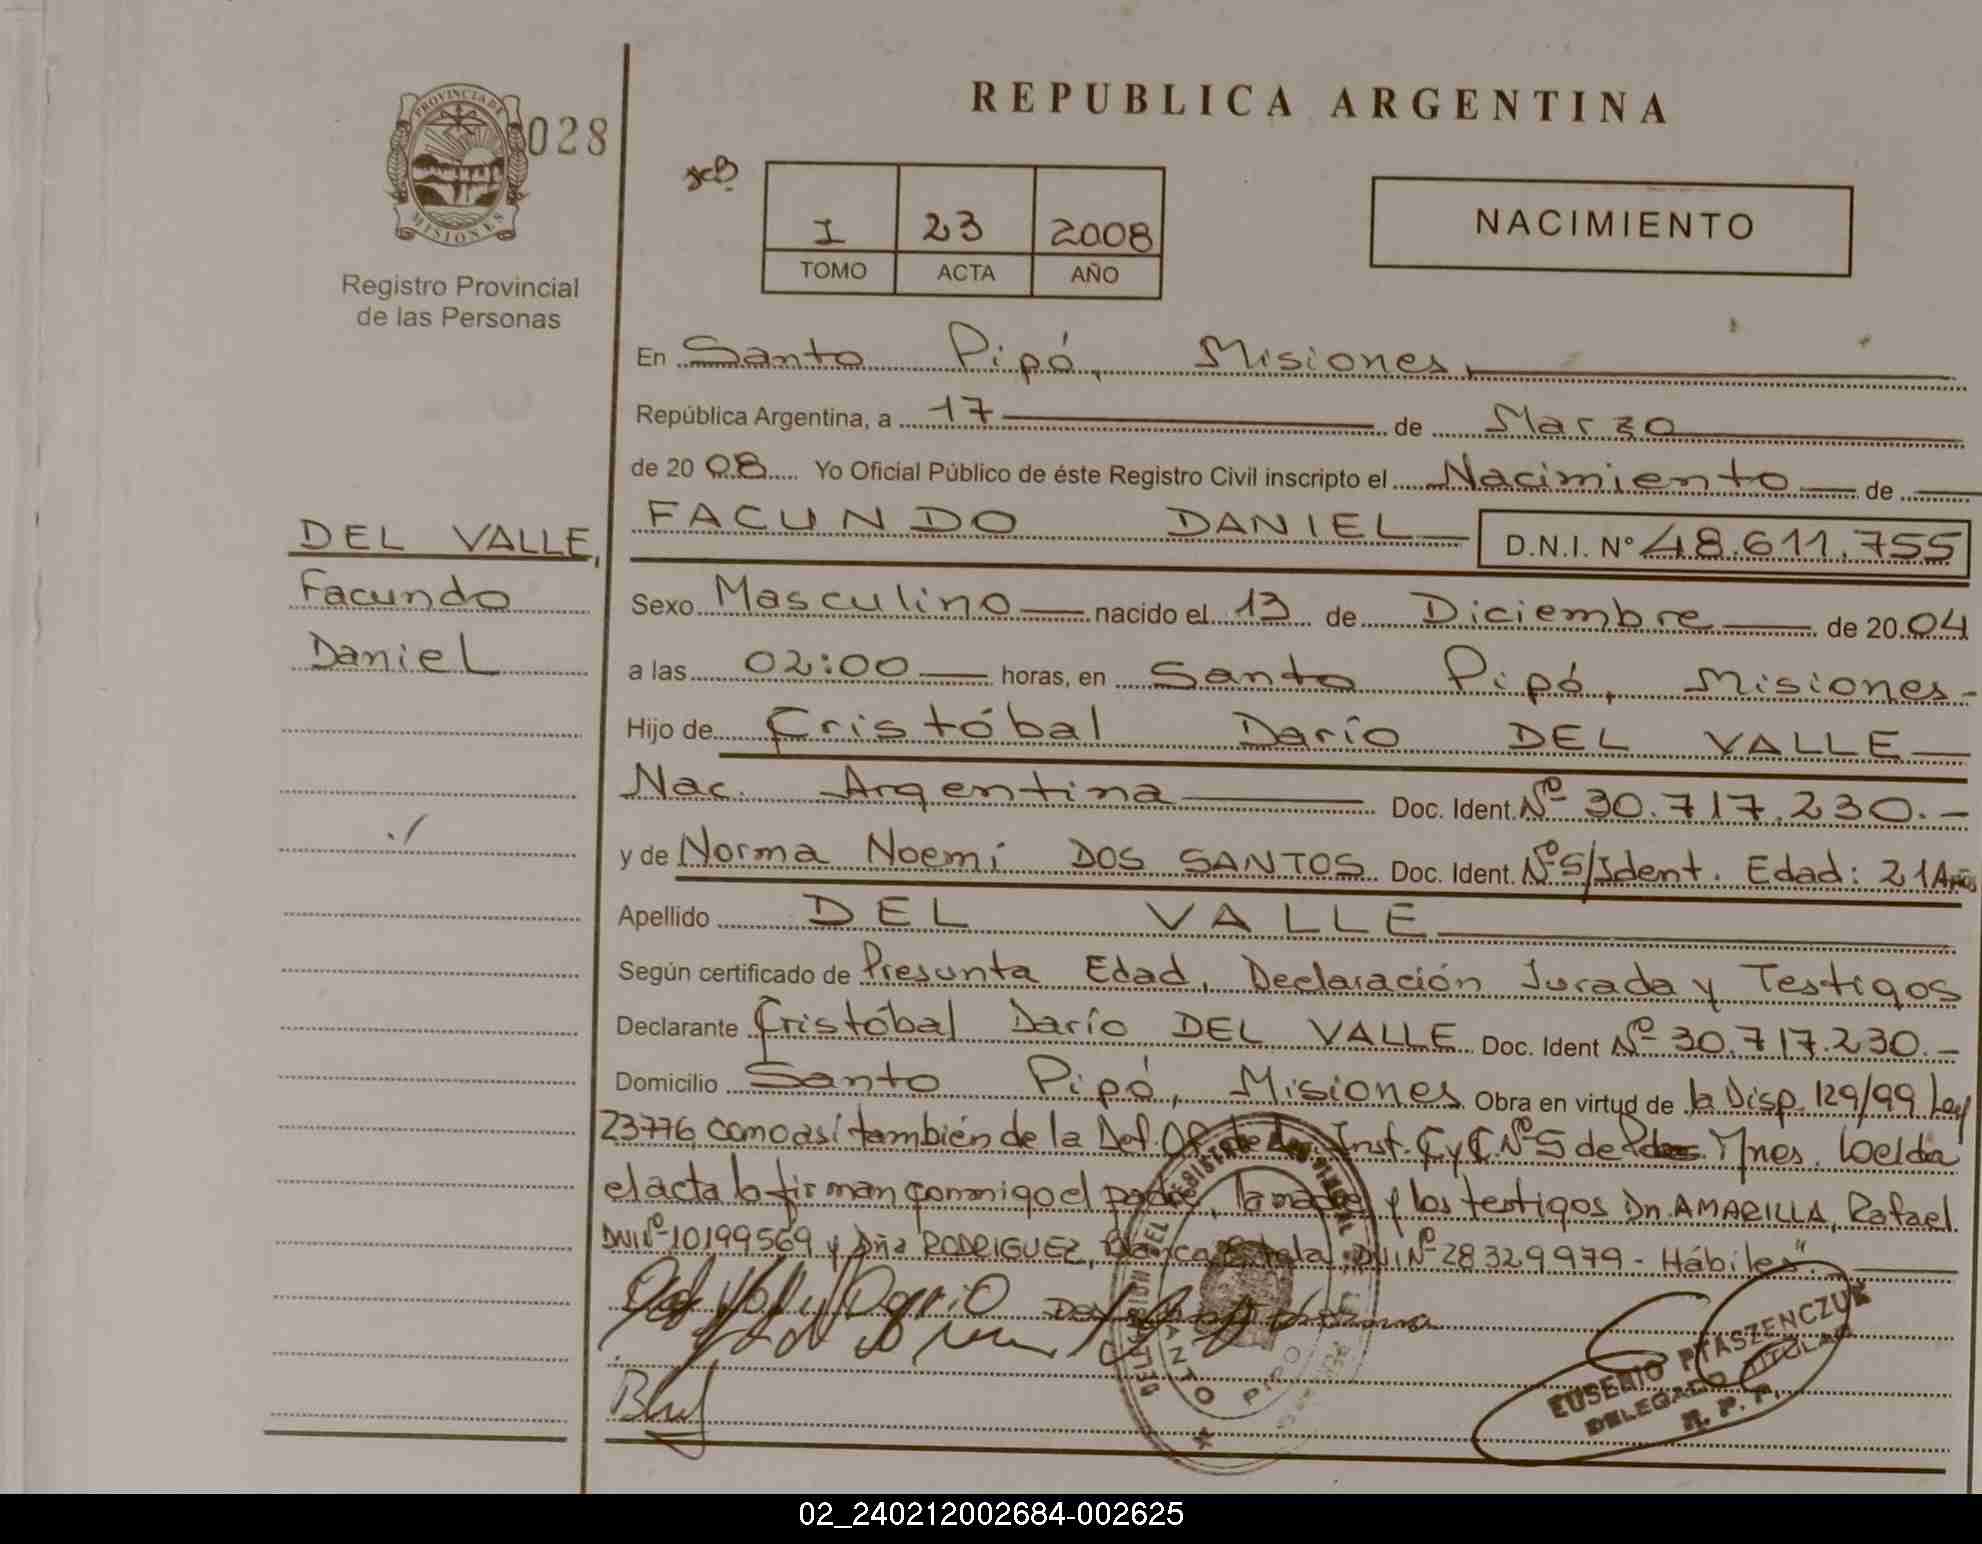 PROVINCIA DE
MISIONES
028
Registro Provincial
de las Personas
REPUBLICA ARGENTINA
I 23 2008
TOMO ACTA AÑO
NACIMIENTO
En Santo Pipó, Misiones,
República Argentina, a 17 de Marzo
de 2008 Yo Oficial Público de éste Registro Civil inscripto el Nacimiento de
FACUNDO DANIEL D.N.I. Nº 48.611.755
DEL VALLE,
Facundo
Daniel
Sexo Masculino nacido el 13 de Diciembre de 2004
a las 02:00 horas, en Santo Pipó, Misiones-
Hijo de Cristóbal Darío DEL VALLE
Nac. Argentina Doc. Ident. Nº 30.717.230.-
y de Norma Noemí DOS SANTOS Doc. Ident. Nº S/Ident. Edad: 21 Años
Apellido DEL VALLE
Según certificado de Presunta Edad, Declaración Jurada y Testigos
Declarante Cristóbal Darío DEL VALLE Doc. Ident Nº 30.717.230.-
Domicilio Santo Pipó, Misiones Obra en virtud de la Disp. 129/99 Ley
23776, como así también de la Def. Of. de Inst. C y C. Nº 5 de Mnes. Loelda
el acta la firman conmigo el padre, la madre y los testigos Dn. AMARILLA, Rafael
DNI Nº 10199569 y Dña RODRIGUEZ, Blanca Estela, DNI Nº 28329979 - Hábiles".
SANTO PIPO
EUSEBIO PTASZENCZUK
DELEGADO TITULAR
R. P. P.
02_240212002684-002625